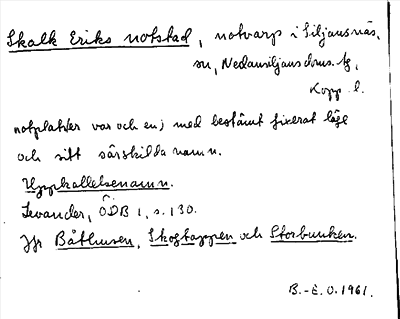 Skalk Eriks notstad, notvarp i Siljansnäs.
sn, Nedansiljans dms. fg,
Kopp. l.
notplatser var och en; med bestämt fixerat läge
och sitt särskilda namn.
Uppkallelsenamn.
Levander, ÖDB 1, s. 130.
Jfr Båthusen, Skogtappen och Storbunken.
B.-E. O. 1961.